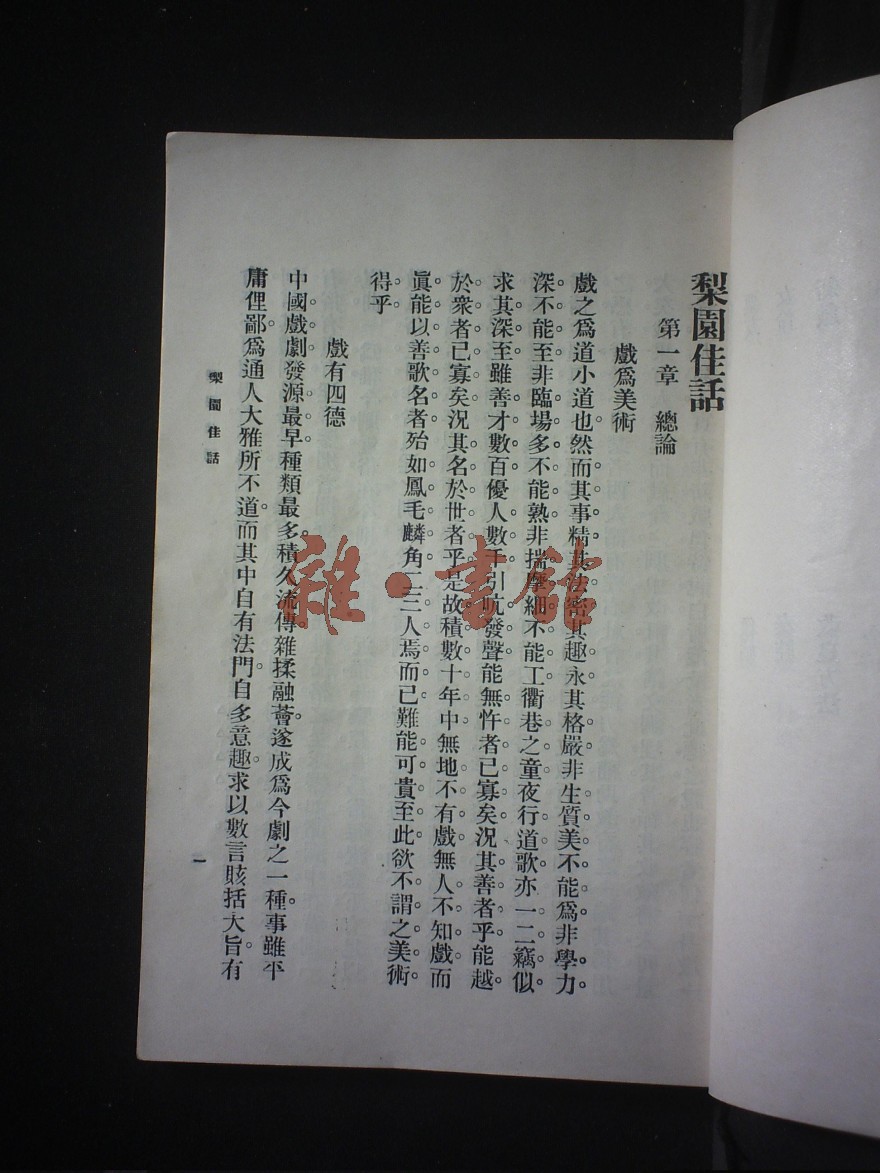 梨園佳話
第一章 總論
戲爲美術
戲之爲道小道也。然而其事精。其法密。其趣永。其格嚴。非生質美不能爲。非學力
深不能至。非臨場多不能熟。非揣摩細不能工。衢巷之童。夜行道歌。亦一二竊似。
求其深至。雖善才數百。優人數千。引吭發聲。能無忤者已寡矣。況其善者乎。能越
於衆者已寡矣。況其名於世者乎。是故積數十年中。無地不有戲。無人不知戲。而
眞能以善歌名者。殆如鳳毛麟角。一二三人焉而已。難能可貴至此。欲不謂之美術。
得乎。
戲有四德
中國戲劇。發源最早。種類最多。積久流傳。雜揉融薈。遂成爲今劇之一種。事雖平
庸俚鄙。爲通人大雅所不道。而其中自有法門。自多意趣。求以數言賅括大旨。有
梨園佳話
一
雜·書館